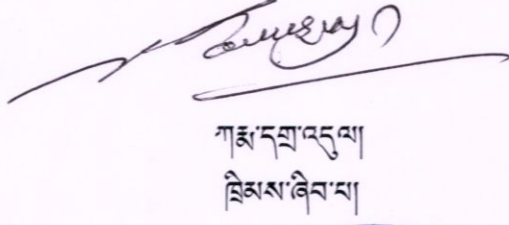 ཀརྨ་དགྲ་འདུལ།
ཁྲིམས་ཞིབ་པ།